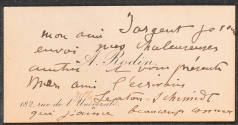 mon ami Sargent je vous
envoi mes chaleureuses
A. Rodin
amitiés & vous présente
Mon ami l'écrivain
182, rue de l'Université
Lepton-Schmidt
que j'aime beaucoup comme